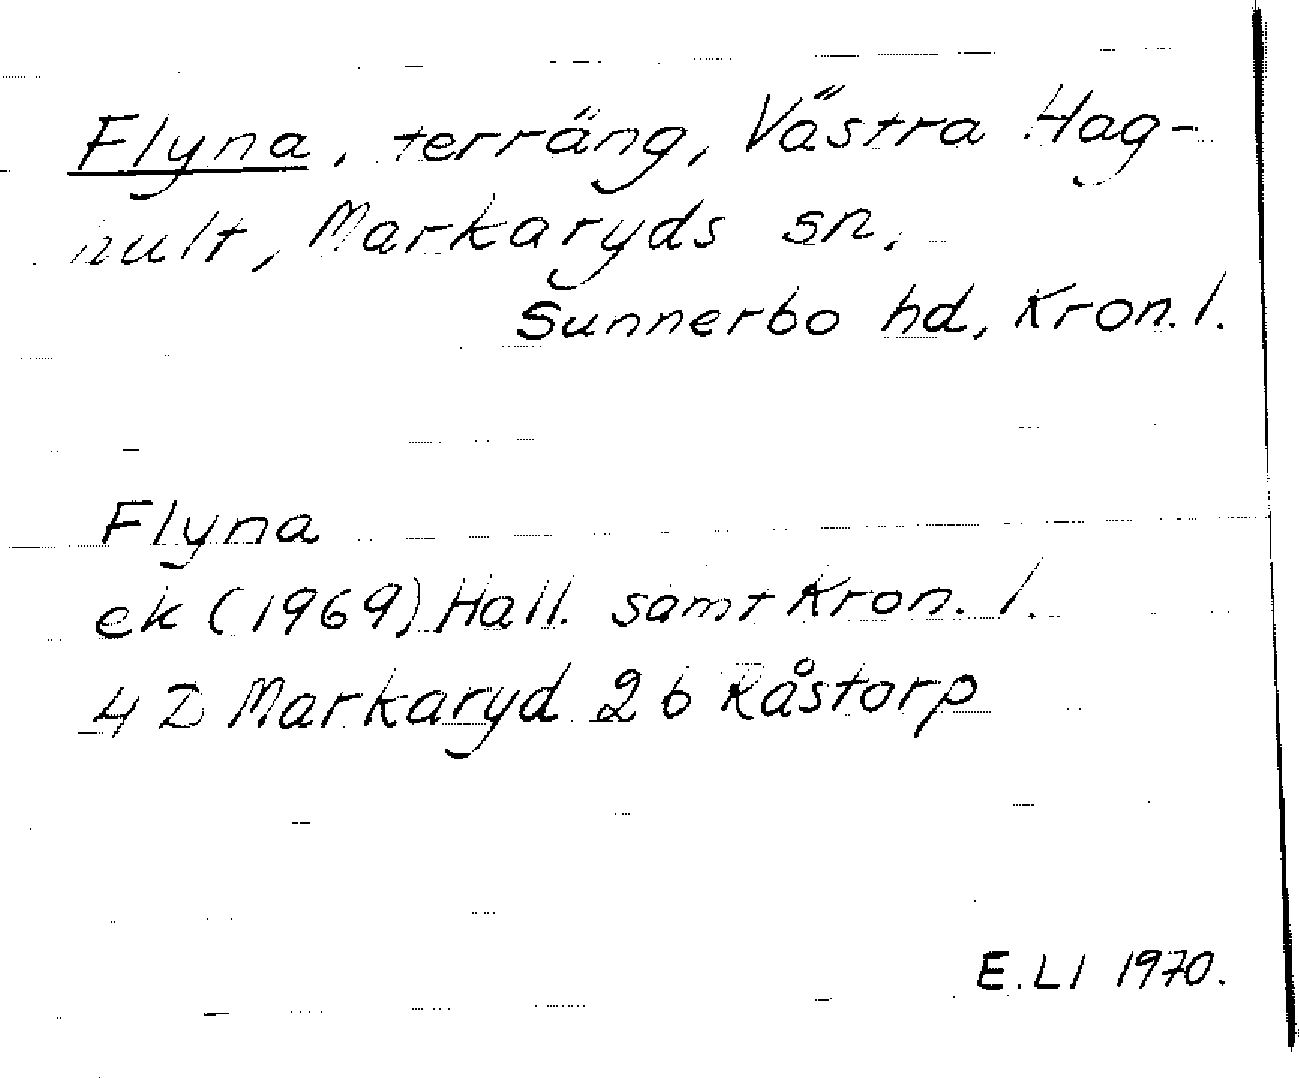 Flyna, terräng, Västra Hag-
hult, Markaryds sn.
Sunnerbo hd, Kron. l.
Flyna
ek (1969) Hall. samt Kron. l.
4 D Markaryd 2 b Råstorp
E. LI 1970.